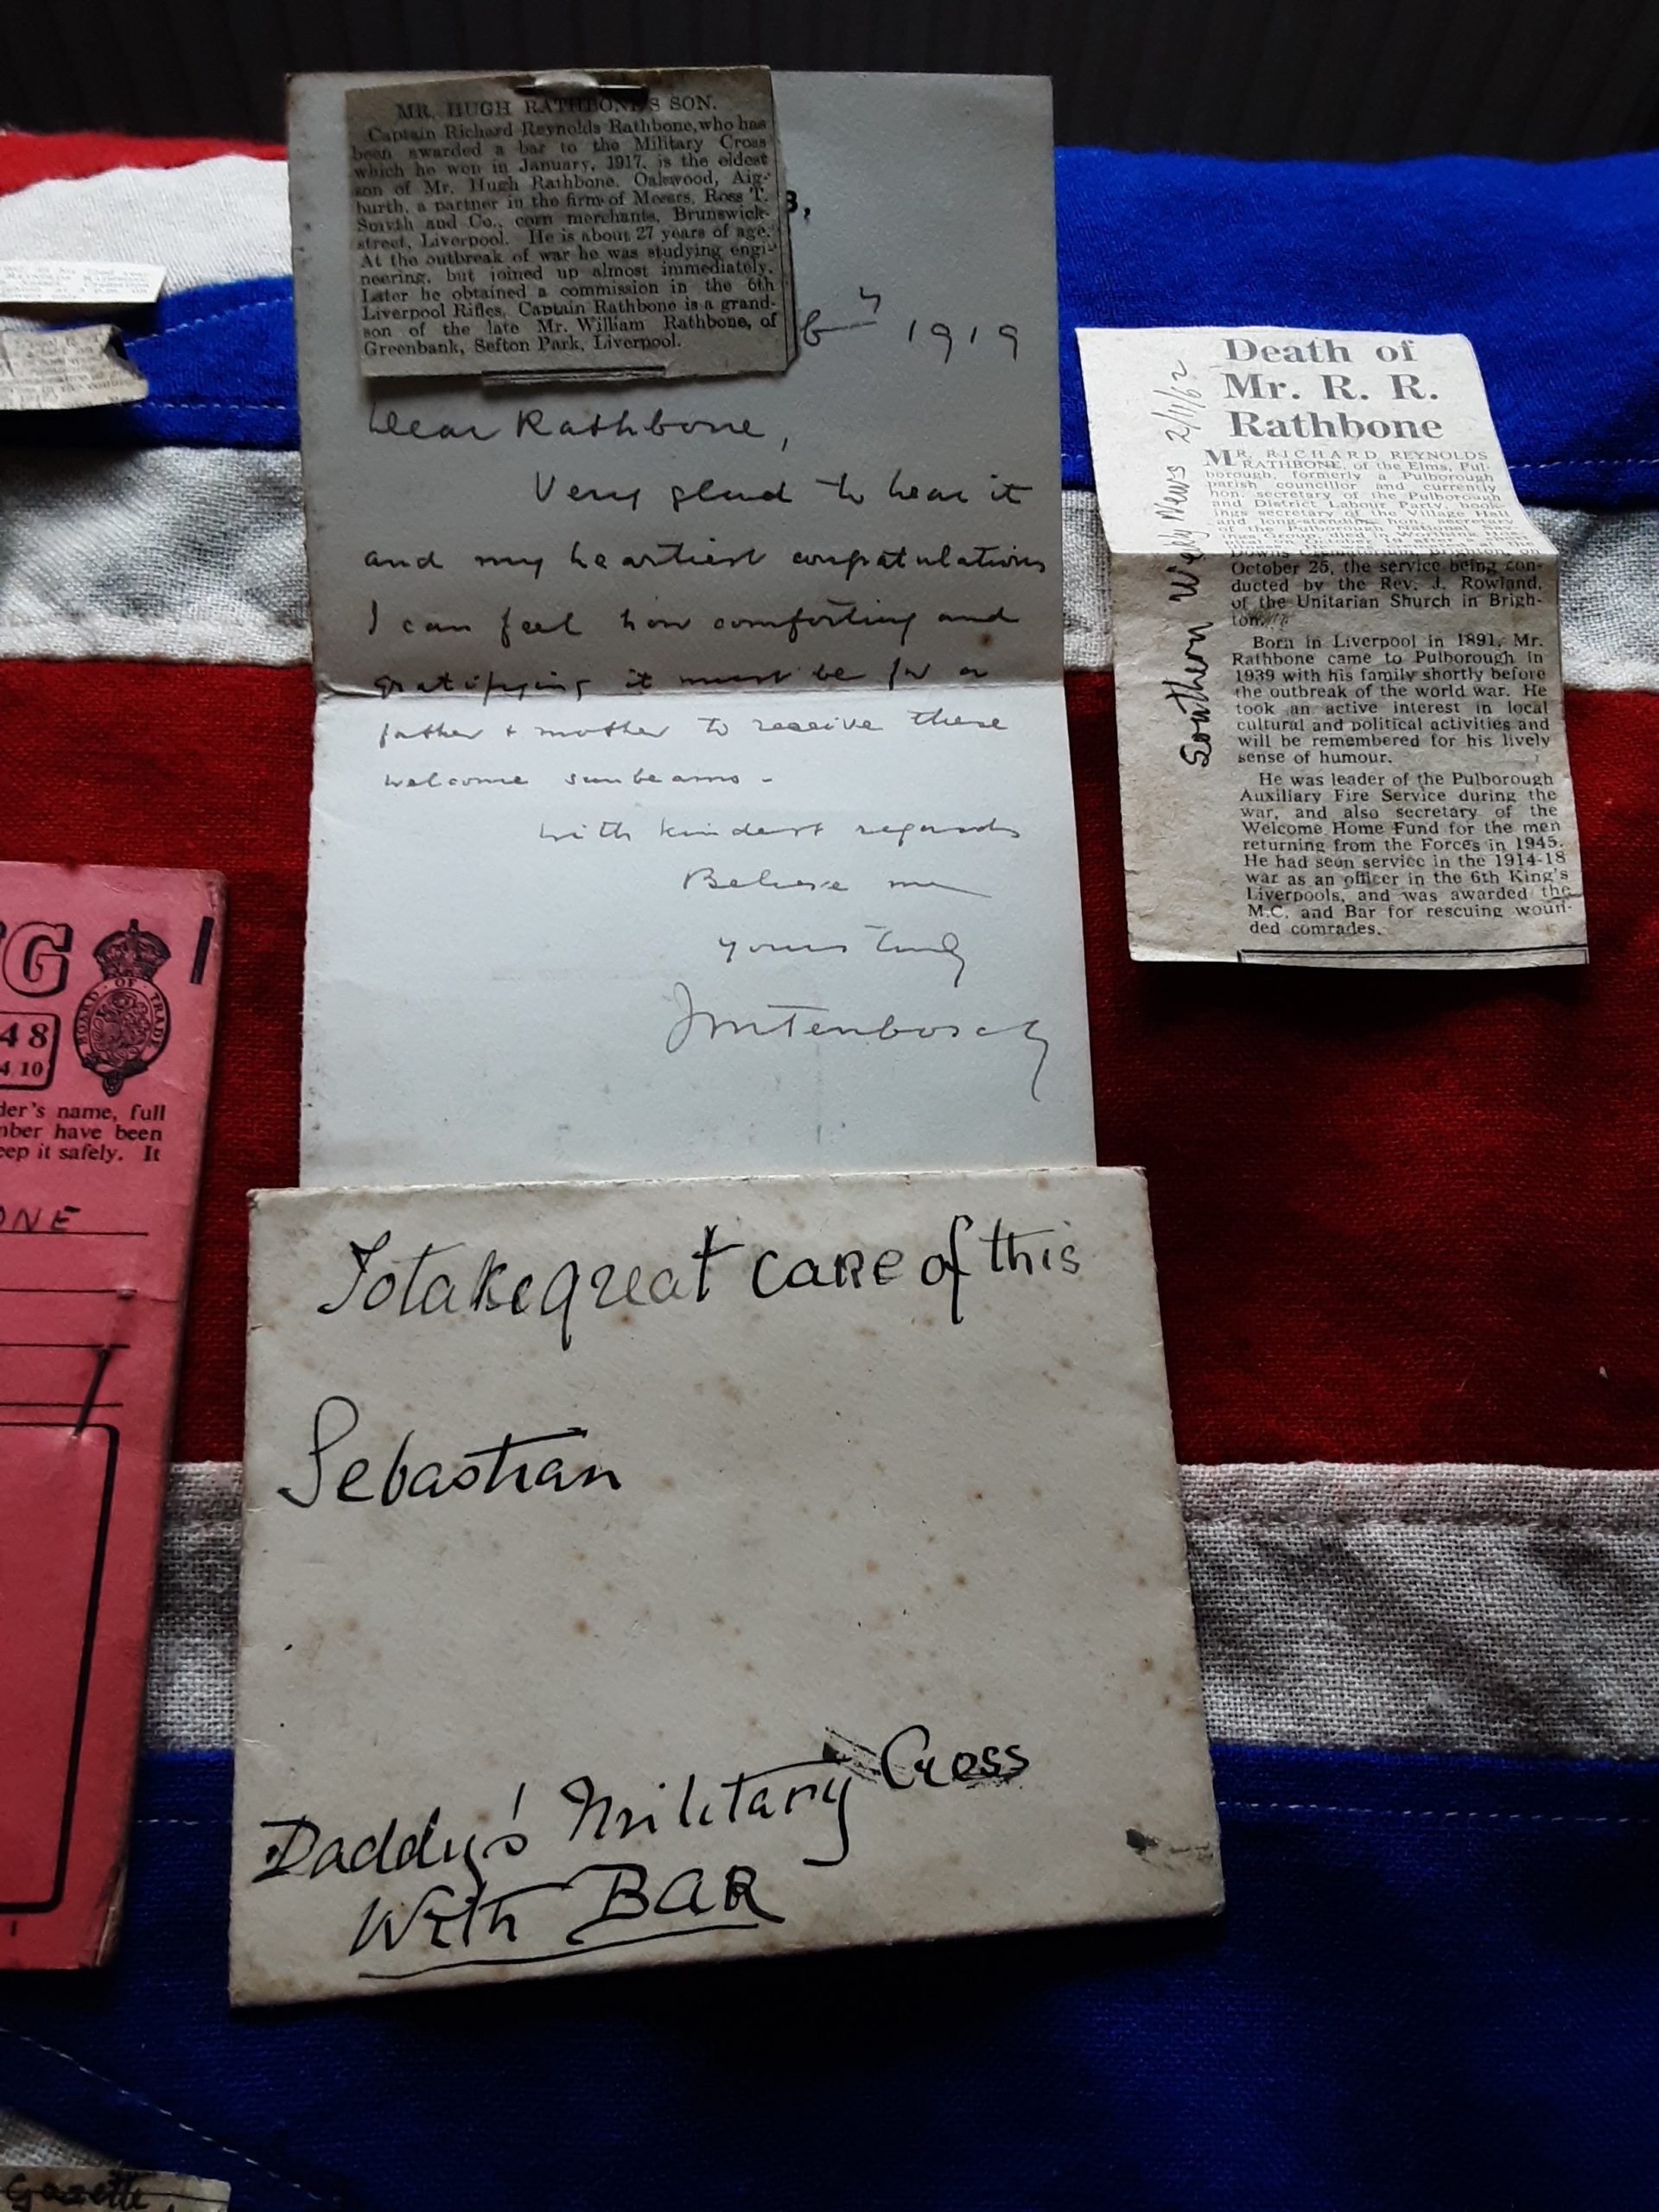 MR. HUGH RATHBONE'S SON.
Captain Richard Reynolds Rathbone, who has
been awarded a bar to the Military Cross
which he won in January, 1917, is the eldest
son of Mr. Hugh Rathbone, Oakwood, Aig-
burth, a partner in the firm of Messrs. Ross T.
Smyth and Co., corn merchants, Brunswick-
street, Liverpool. He is about 27 years of age.
At the outbreak of war he was studying engi-
neering, but joined up almost immediately.
Later he obtained a commission in the 6th
Liverpool Rifles. Captain Rathbone is a grand-
son of the late Mr. William Rathbone, of
Greenbank, Sefton Park, Liverpool.
1919
Dear Rathbone,
Very glad to hear it
and my heartiest congratulations
I can feel how comforting and
gratifying it must be for a
father & mother to receive these
welcome sunbeams -
With kindest regards
Believe me
yours truly
JmTenbosch
To take great care of this
Sebastian
Daddy's Military Cross
With BAR
Southern Wkly News 2/11/62
Death of
Mr. R. R.
Rathbone
MR. RICHARD REYNOLDS
RATHBONE, of the Elms, Pul-
borough, formerly a Pulborough
parish councillor and currently
hon. secretary of the Pulborough
and District Labour Party, book-
ings secretary of the Village Hall
and long-standing hon. secretary
of the Pulborough National Sav-
ings Group, died in
October 25, the service being con-
ducted by the Rev. J. Rowland,
of the Unitarian Shurch in Brigh-
ton.
Born in Liverpool in 1891, Mr.
Rathbone came to Pulborough in
1939 with his family shortly before
the outbreak of the world war. He
took an active interest in local
cultural and political activities and
will be remembered for his lively
sense of humour.
He was leader of the Pulborough
Auxiliary Fire Service during the
war, and also secretary of the
Welcome Home Fund for the men
returning from the Forces in 1945.
He had seen service in the 1914-18
war as an officer in the 6th King's
Liverpools, and was awarded the
M.C. and Bar for rescuing woun-
ded comrades.
G
BOARD OF TRADE
48
4/10
der's name, full
mber have been
eep it safely. It
ONE
Gazette